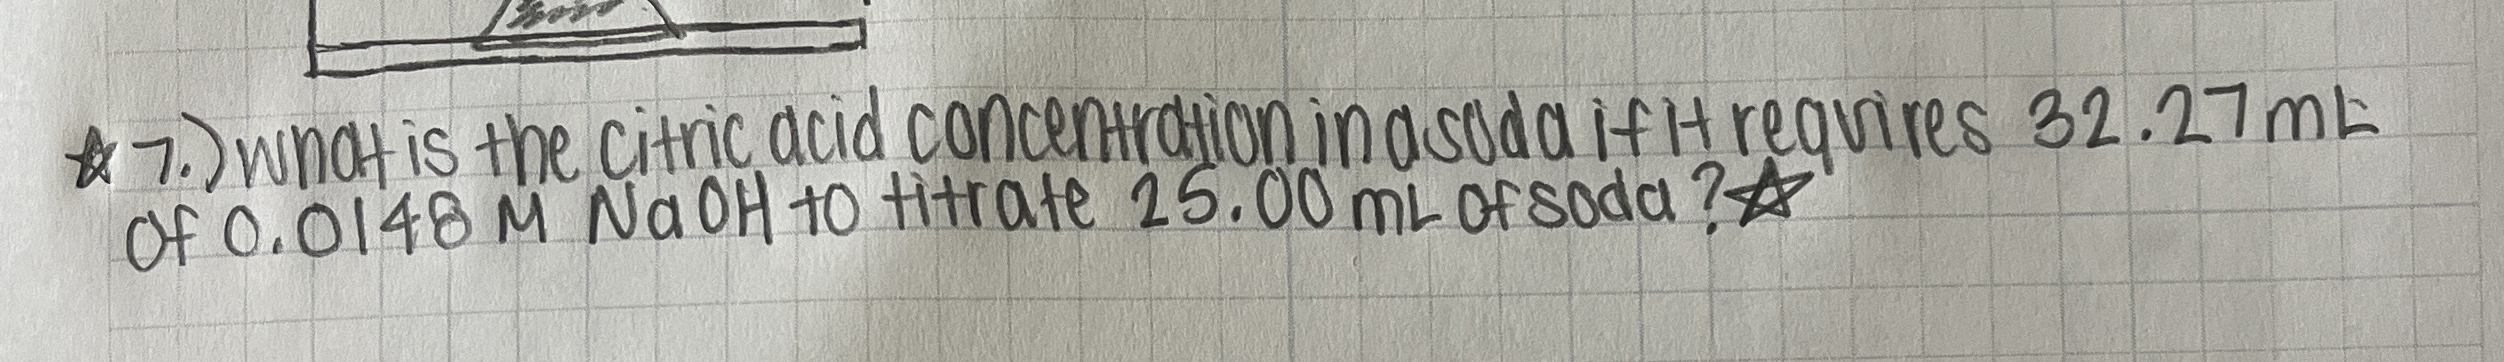 ☆ 7.) What is the citric acid concentration in a soda if it requires 32.27 mL
of 0.0148 M NaOH to titrate 25.00 mL of soda? ☆